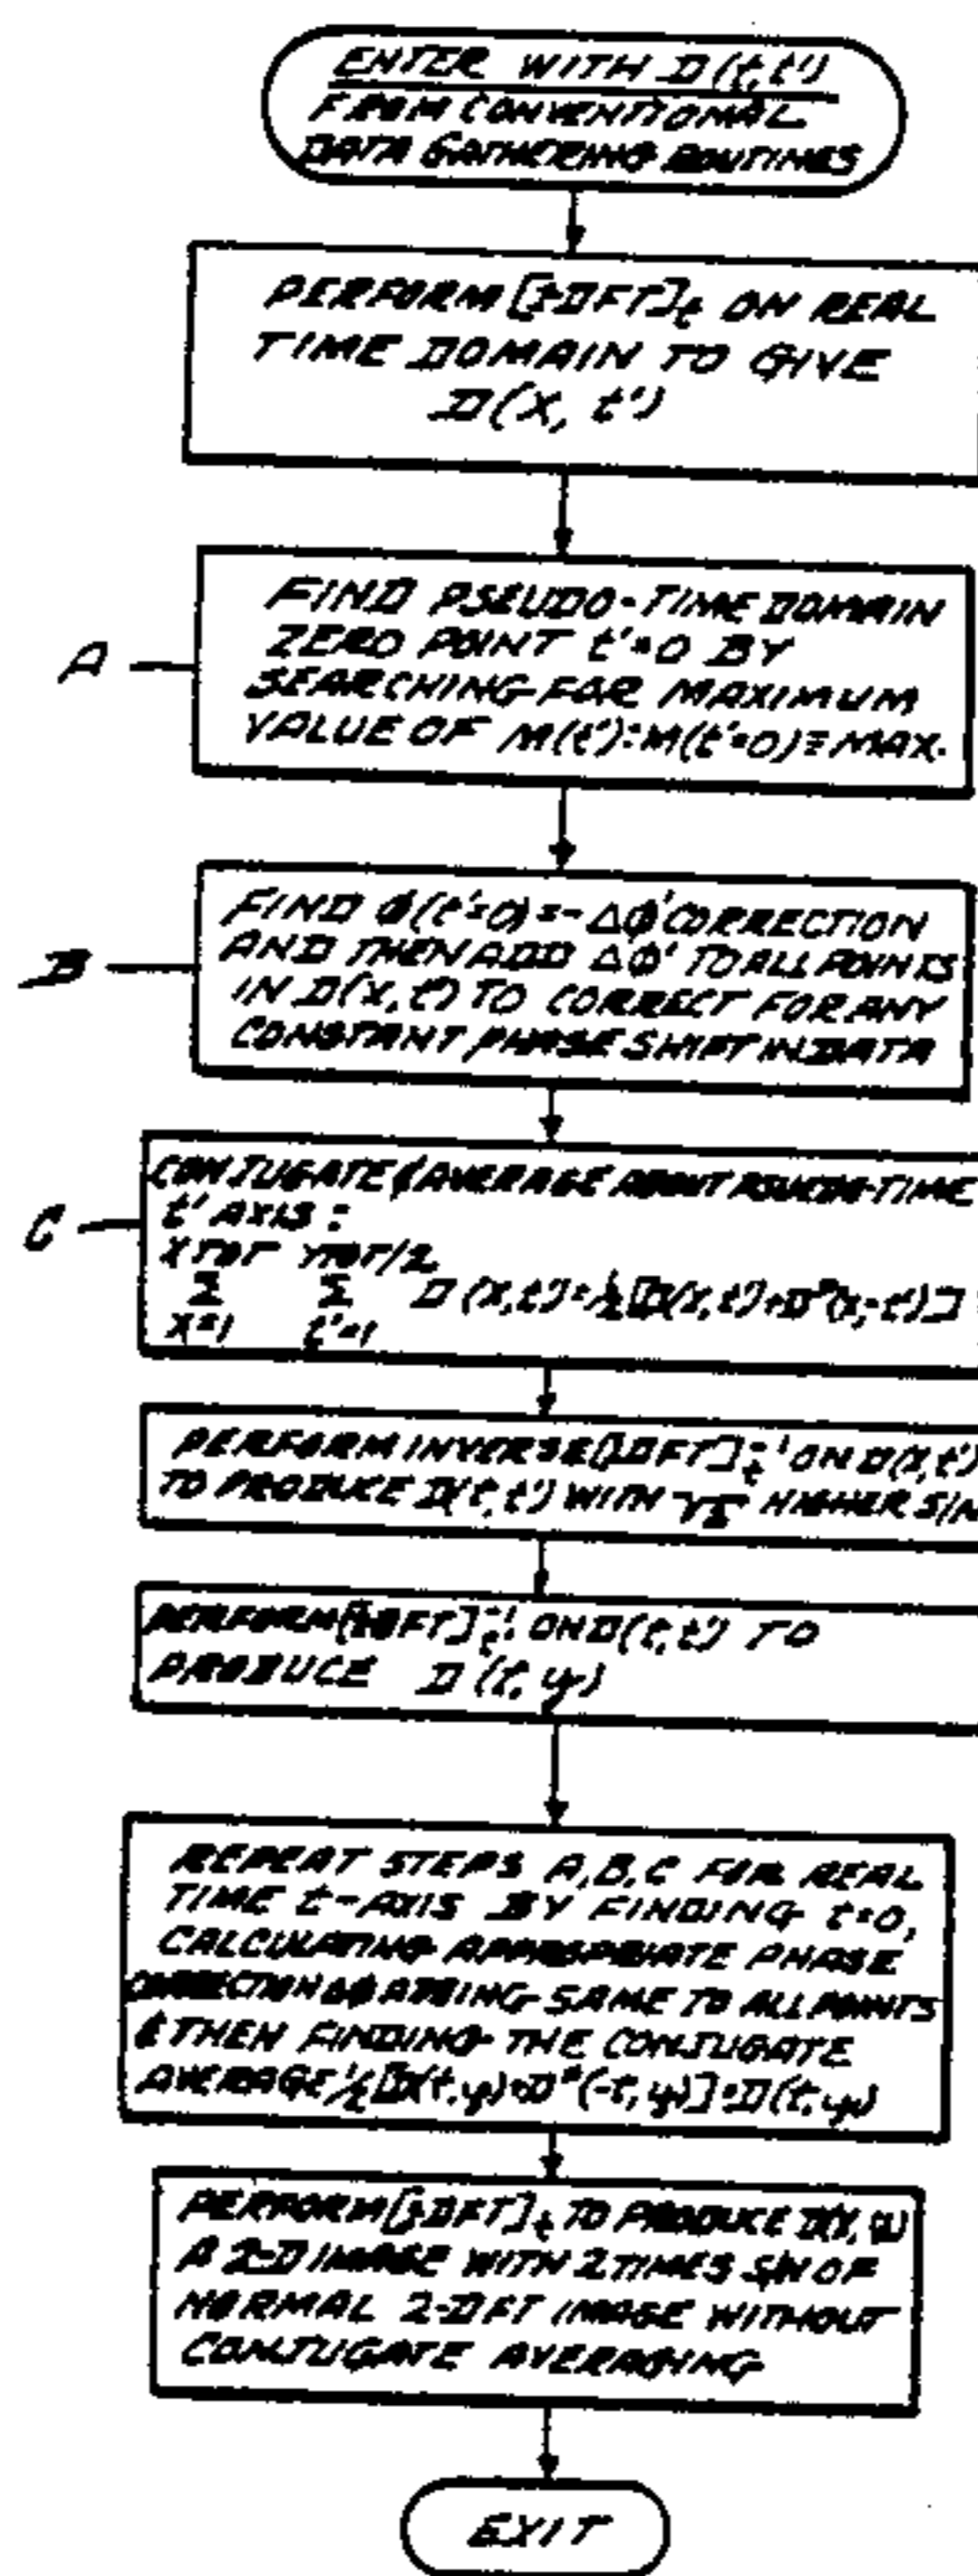 ENTER WITH D(t,t')
FROM CONVENTIONAL
DATA GATHERING ROUTINES
PERFORM [1DFT]t ON REAL
TIME DOMAIN TO GIVE
D(X, t')
A
FIND PSEUDO-TIME DOMAIN
ZERO POINT t'=0 BY
SEARCHING FOR MAXIMUM
VALUE OF M(t'): M(t'=0)≡MAX.
B
FIND φ(t'=0)=-Δφ' CORRECTION
AND THEN ADD Δφ' TO ALL POINTS
IN D(X,t') TO CORRECT FOR ANY
CONSTANT PHASE SHIFT IN DATA
C
CONJUGATE & AVERAGE ABOUT PSUEDO-TIME
t' AXIS:
XTOT YTOT/2
Σ Σ D(X,t')=½[D(X,t')+D*(X,-t')]
X=1 t'=1
PERFORM INVERSE [1DFT]t⁻¹ ON D(X,t')
TO PRODUCE D(t,t') WITH √2 HIGHER S/N
PERFORM [1DFT]t'⁻¹ ON D(t,t') TO
PRODUCE D(t,y)
REPEAT STEPS A,B,C FOR REAL
TIME t-AXIS BY FINDING t=0,
CALCULATING APPROPRIATE PHASE
CORRECTION Δφ ADDING SAME TO ALL POINTS
& THEN FINDING THE CONJUGATE
AVERAGE ½[D(t,y)+D*(-t,y)]=D(t,y)
PERFORM [1DFT]t TO PRODUCE D(X,y)
A 2-D IMAGE WITH 2 TIMES S/N OF
NORMAL 2-DFT IMAGE WITHOUT
CONJUGATE AVERAGING
EXIT